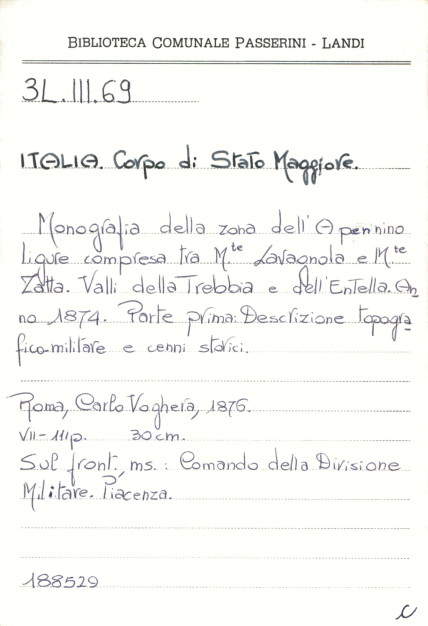 BIBLIOTECA COMUNALE PASSERINI - LANDI
3L.III.69
ITALIA. Corpo di Stato Maggiore.
Monografia della zona dell'Apennino
ligure compresa tra M.te Lavagnola e M.te
Zatta. Valli della Trebbia e dell'Entella. An
no 1874. Parte prima: Descrizione topogra
fico-militare e cenni storici.
Roma, Carlo Voghera, 1876.
VII-111p. 30cm.
Sul front., ms.: Comando della Divisione
Militare. Piacenza.
188529
C